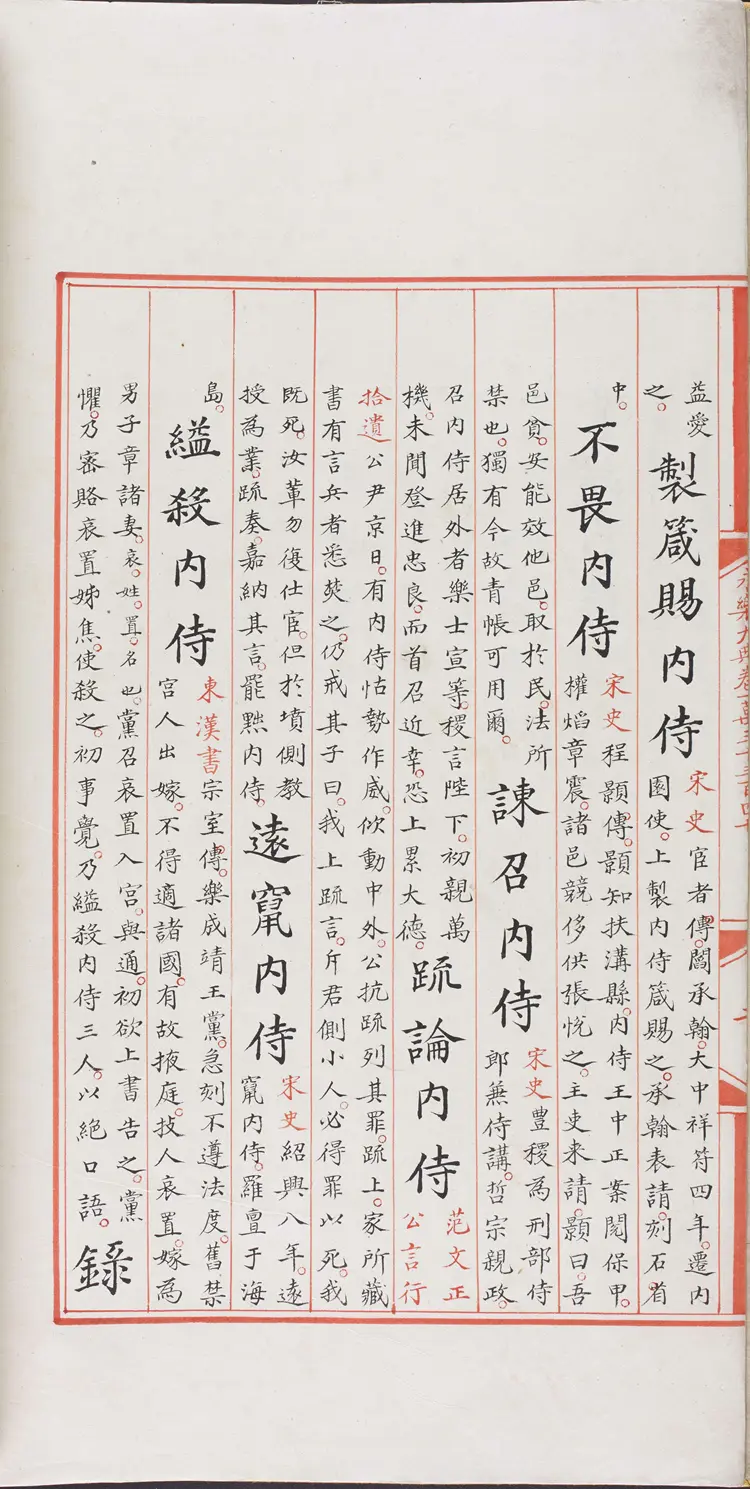 益愛
之。
製箴賜内侍
宋史宦者傳。閻承翰。大中祥符四年。遷内
園使。上製内侍箴賜之。承翰表請。刻石省
中。
不畏内侍
宋史程顥傳。顥知扶溝縣。内侍王中正案閱保甲。
權焰章震。諸邑競侈供張悅之。主吏来請。顥曰。吾
邑貧。安能效他邑。取於民。法所
禁也。獨有今故青帳可用爾。
諫召内侍
宋史豊稷為刑部侍
郎兼侍講。哲宗親政。
召内侍居外者樂士宣等。稷言陛下。初親萬
機。未聞登進忠良。而首召近幸。恐上累大德。
疏論内侍
范文正
公言行
拾遺公尹京日。有内侍怙勢作威。傾動中外。公抗疏列其罪。疏上。家所藏
書有言兵者悉焚之。仍戒其子曰。我上疏言。斥君側小人。必得罪以死。我
既死。汝軰勿復仕宦。但於墳側教
授為業。疏奏。嘉納其言。罷黜内侍。
遠竄内侍
宋史紹興八年。遠
竄内侍。羅亶于海
島。
縊殺内侍
東漢書宗室傳。樂成靖王黨。急刻不遵法度。舊禁
宫人出嫁。不得適諸國。有故掖庭。技人哀置。嫁為
男子章諸妻。哀。姓。置。名也。黨召哀置入宫。與通。初欲上書告之。黨
懼。乃密賂哀置姊焦。使殺之。初事覺。乃縊殺内侍三人。以絕口語。
錄